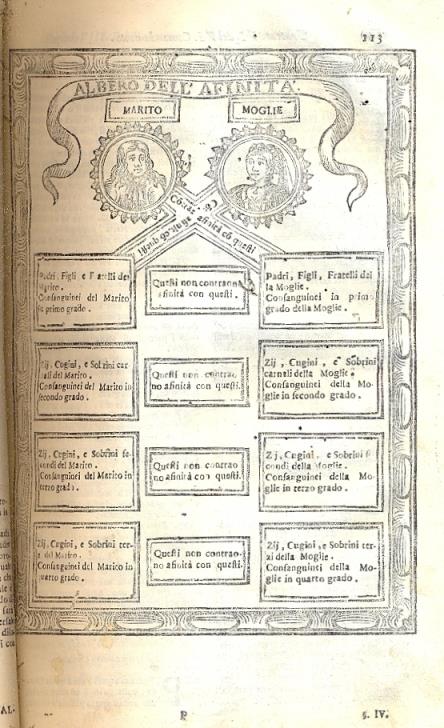 113
ALBERO DELL' AFINITA.
MARITO
MOGLIE
afinità cò questi
afinità cò questi
Padri, Figli e Fratelli del
Marito.
Consanguinei del Marito
in primo grado.
Questi non contraono
afinità con questi.
Padri, Figli, Fratelli del
la Moglie.
Consanguinei in primo
grado della Moglie.
Zij, Cugini, e Sobrini car
nali del Marito.
Consanguinei del Marito in
secondo grado.
Questi non contrao
no afinità con questi.
Zij, Cugini, e Sobrini
carnali della Moglie.
Consanguinei della Mo
glie in secondo grado.
Zij, Cugini, e Sobrini se
condi del Marito.
Consanguinei del Marito in
terzo grado.
Questi non contrao
no afinità con questi.
Zj, Cugini, e Sobrini se
condi della Moglie.
Consanguinei della Mo
glie in terzo grado.
Zij, Cugini, e Sobrini ter
zi del Marito.
Consanguinei del Marito in
quarto grado.
Questi non contrao-
no afinità con questi.
Zij, Cugini, e Sobrini ter
zi della Moglie.
Consanguinei della Mo
glie in quarto grado.
P
§. IV.